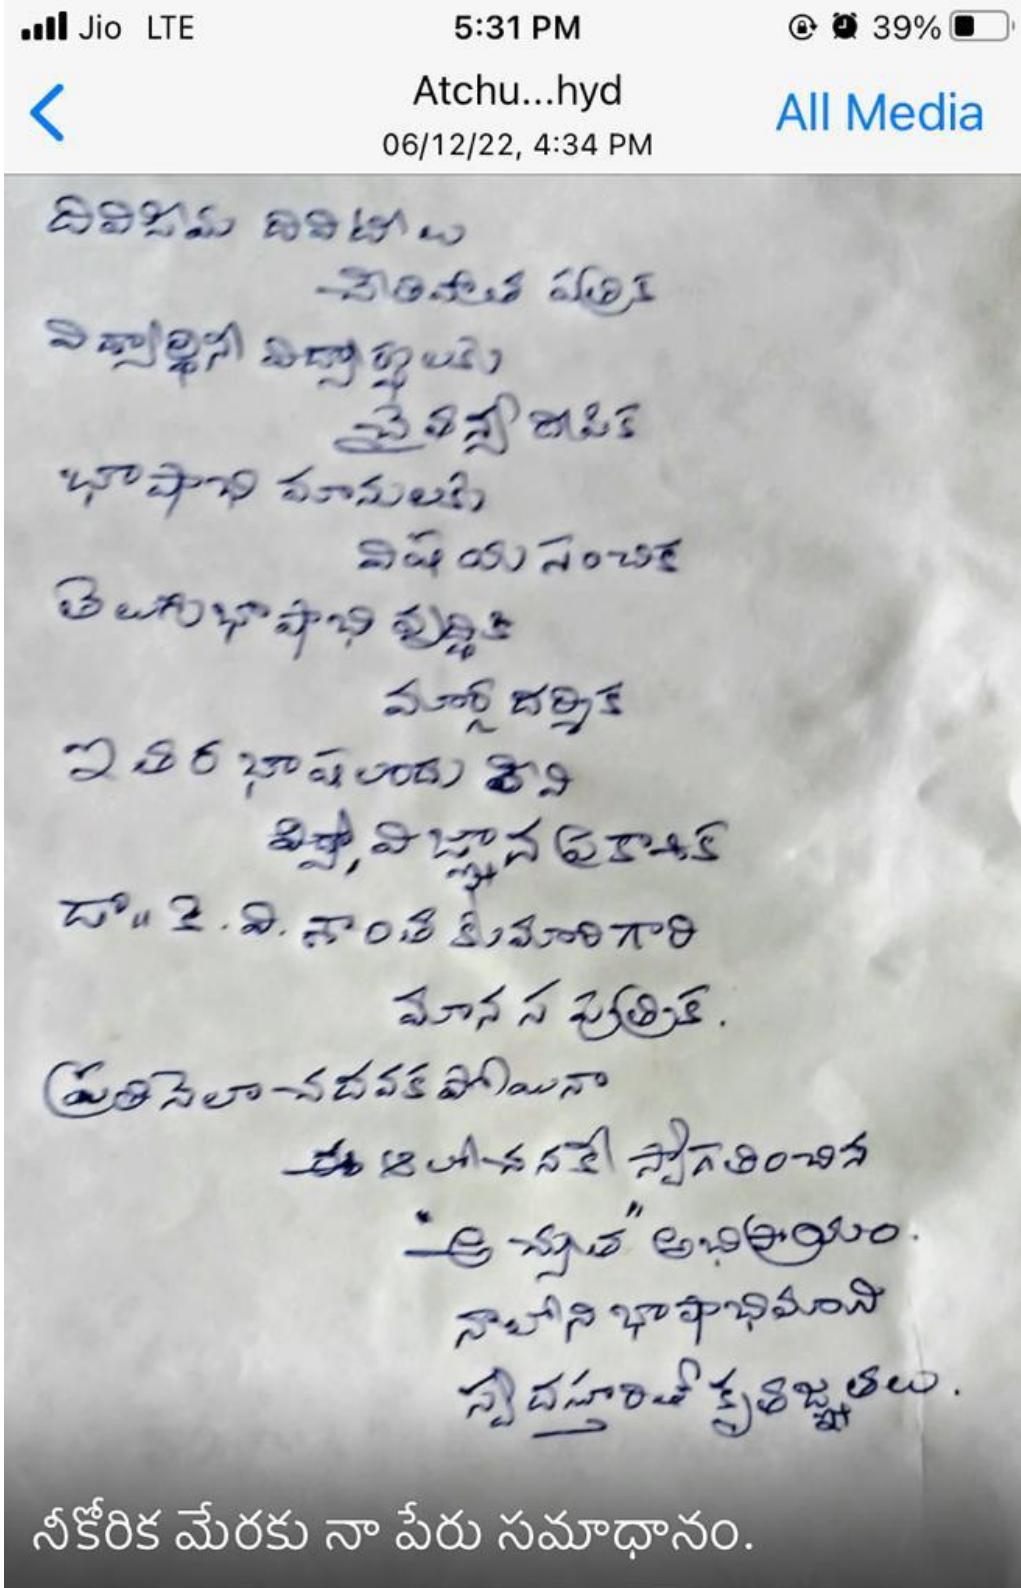 Jio LTE 5:31 PM 39%
Atchu...hyd All Media
06/12/22, 4:34 PM
దివిసీమ దివిటీలు
పత్రిక
విద్యార్థినీ విద్యార్థులకు
చైతన్య దీపిక
భాషాభి మానులకు
విషయ సంచిక
తెలుగుభాషాభి వృద్ధికి
మార్గ దర్శిక
ఇతర భాషలందు
విద్యా, విజ్ఞాన ప్రకాశిక
డా॥ కె. వి. శాంత కుమారి గారి
మానస పుత్రిక.
ప్రతినెలా చదవక పోయినా
ఈ ఆలోచనకే స్వాగతించిన
"అచ్యుత" అభిప్రాయం.
నాలోని భాషాభిమాని
స్వదస్తూరితో కృతజ్ఞతలు.
నీకోరిక మేరకు నా పేరు సమాధానం.